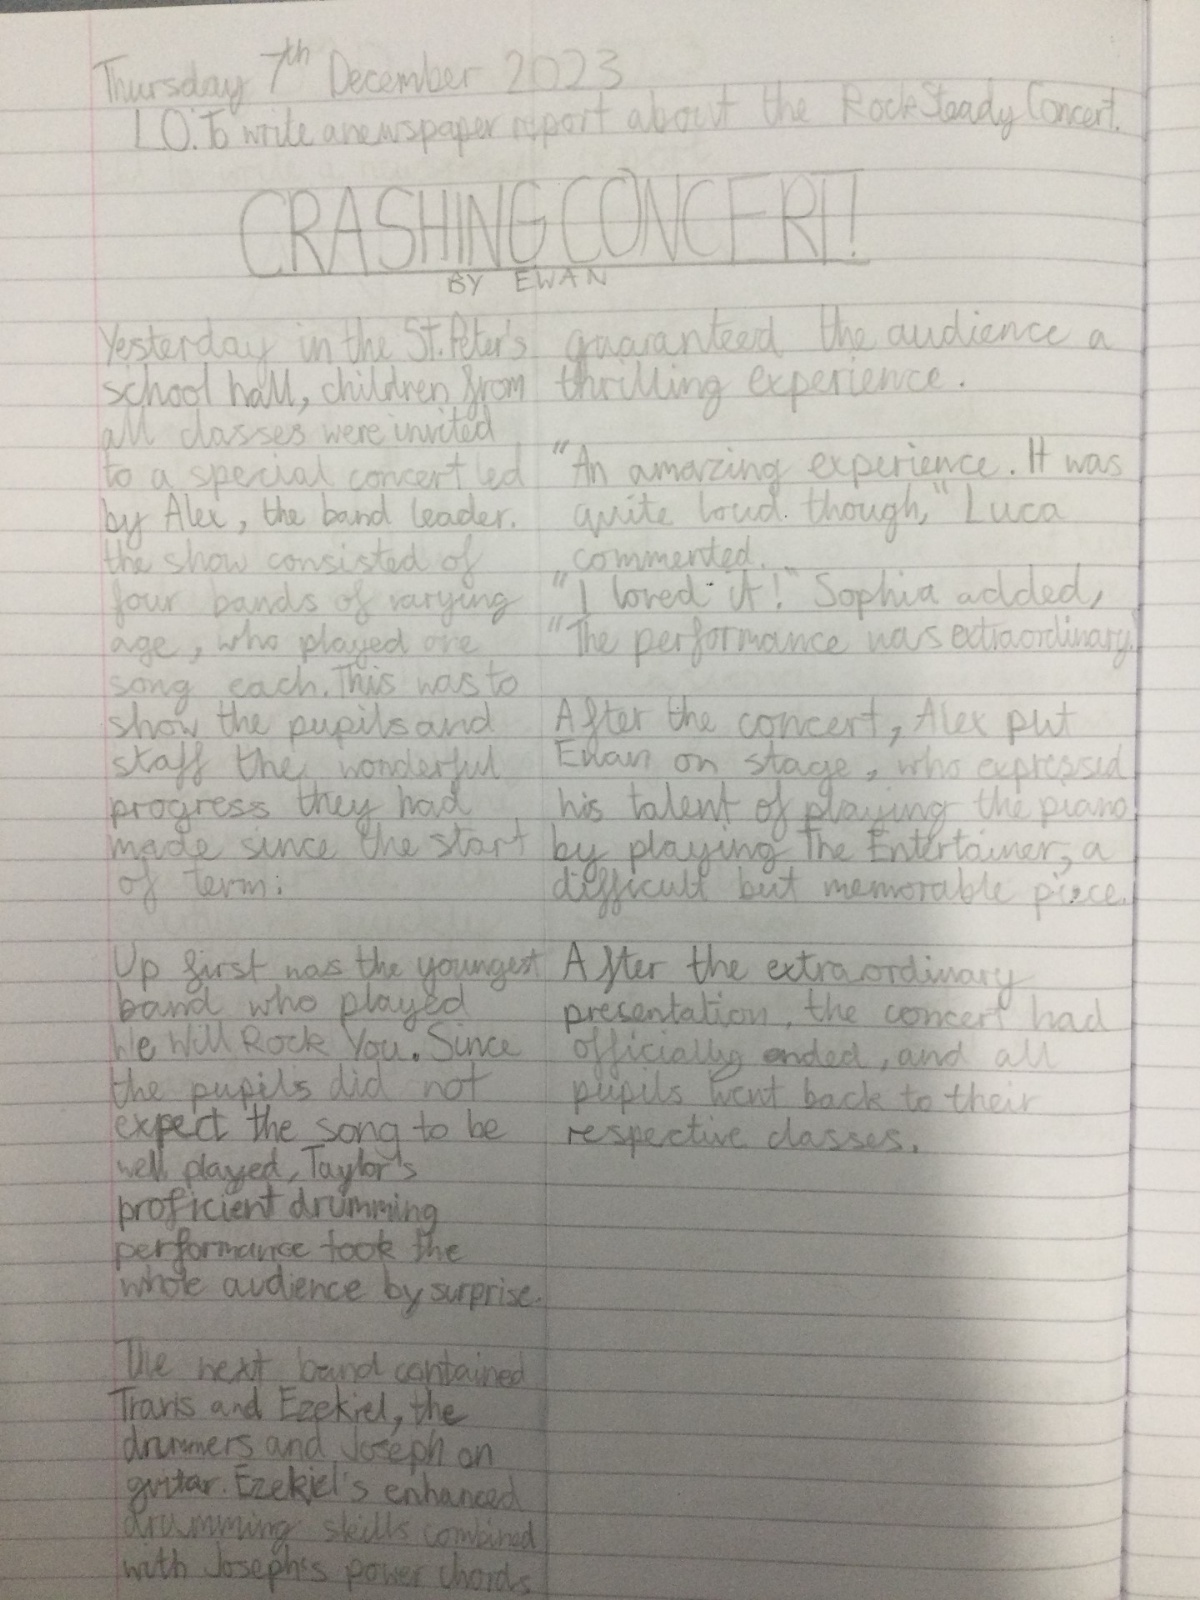 Thursday 7th December 2023
L.O. To write a newspaper report about the RockSteady Concert.
CRASHING CONCERT!
BY EWAN
Yesterday in the St. Peter's
school hall, children from
all classes were invited
to a special concert led
by Alex, the band leader.
the show consisted of
four bands of varying
age, who played one
song each. This was to
show the pupils and
staff the wonderful
progress they had
made since the start
of term.
Up first was the youngest
band who played
We Will Rock You. Since
the pupils did not
expect the song to be
well played, Taylor's
proficient drumming
performance took the
whole audience by surprise.
The next band contained
Travis and Ezekiel, the
drummers and Joseph on
guitar. Ezekiel's enhanced
drumming skills combined
with Joseph's power chords
guaranteed the audience a
thrilling experience.
"An amazing experience. It was
quite loud though," Luca
commented.
"I loved it!" Sophia added,
"The performance was extraordinary."
After the concert, Alex put
Ewan on stage, who expressed
his talent of playing the piano
by playing The Entertainer, a
difficult but memorable piece.
After the extraordinary
presentation, the concert had
officially ended, and all
pupils went back to their
respective classes.